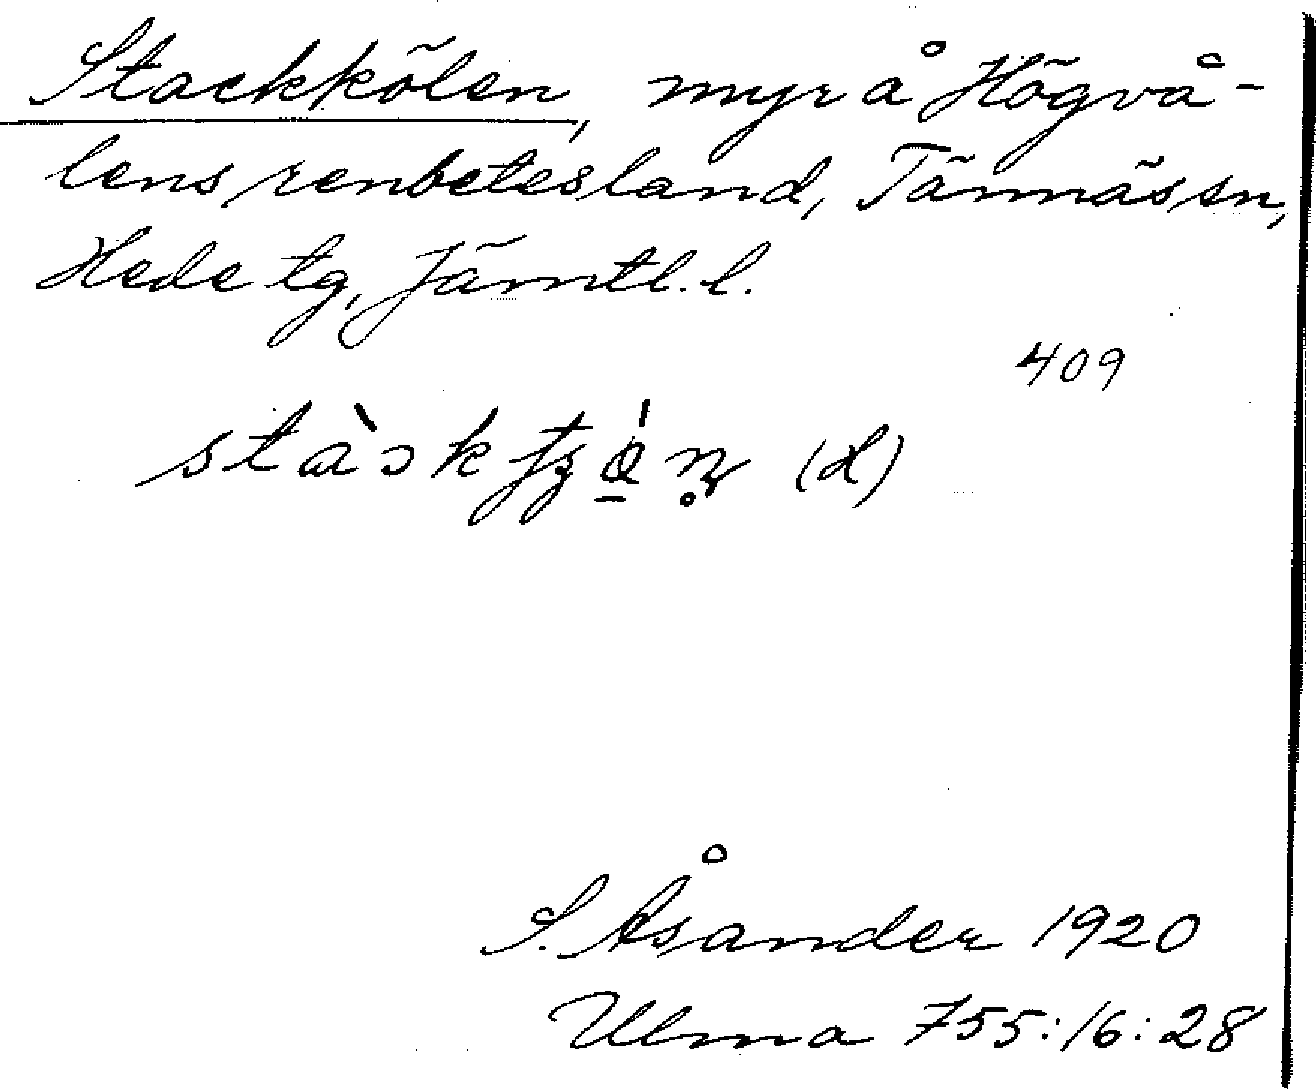 Stackkölen, myr å Högvå-
lens renbetesland, Tännäs sn,
Hede tg, Jämtl. l.
409
(L)
S. Åsander 1920
Ulma 755:16:28